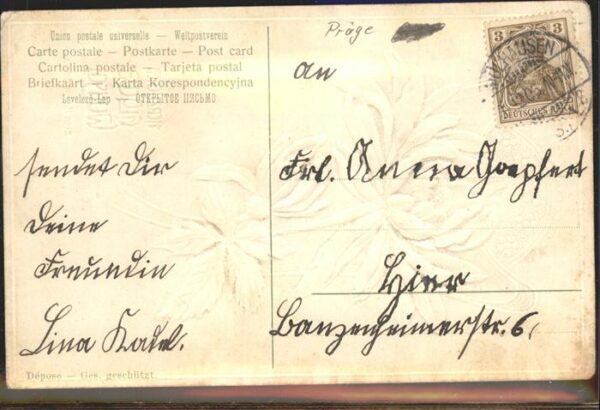 Präge
Union postale universelle — Weltpostverein
Carte postale — Postkarte — Post card
Cartolina postale — Tarjeta postal
Briefkaart — Karta Korespondencyjna
Levelező-Lap — ОТКРЫТОЕ ПИСЬМО
3 3
DEUTSCHES REICH
MÜLHAUSEN
An
Frl. Anna Goepfert
Hier
Banzenheimerstr. 6.
sendet Dir
Deine
Freundin
Lina Kadel.
Déposé — Ges. geschützt